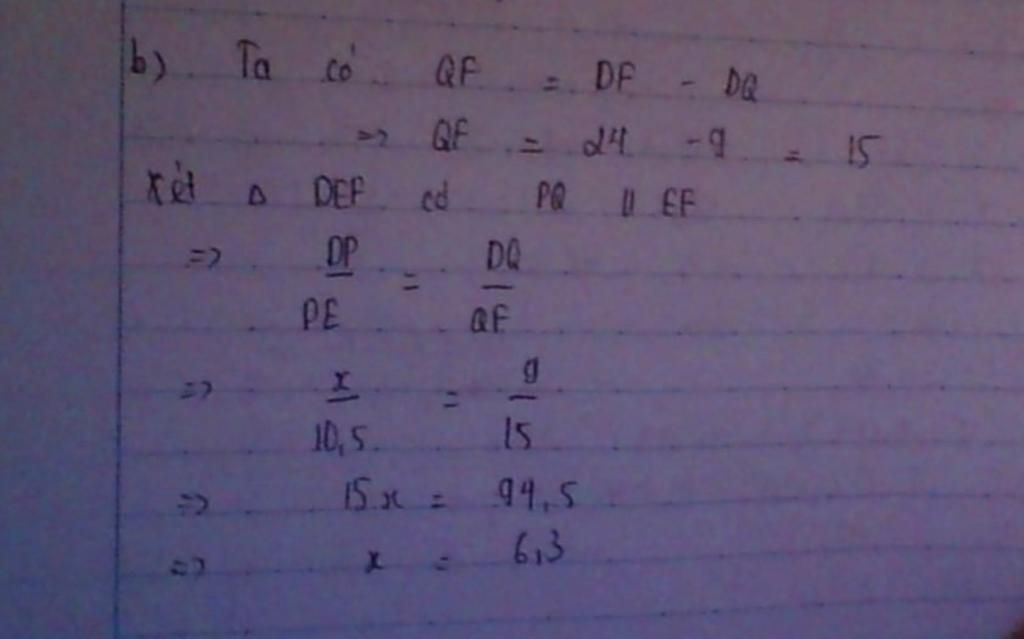 b) Ta có QF = DF - DQ
=> QF = 24 - 9 = 15
Xét Δ DEF có PQ // EF
=> DP/PE = DQ/QF
=> x/10,5 = 9/15
=> 15x = 94,5
=> x = 6,3